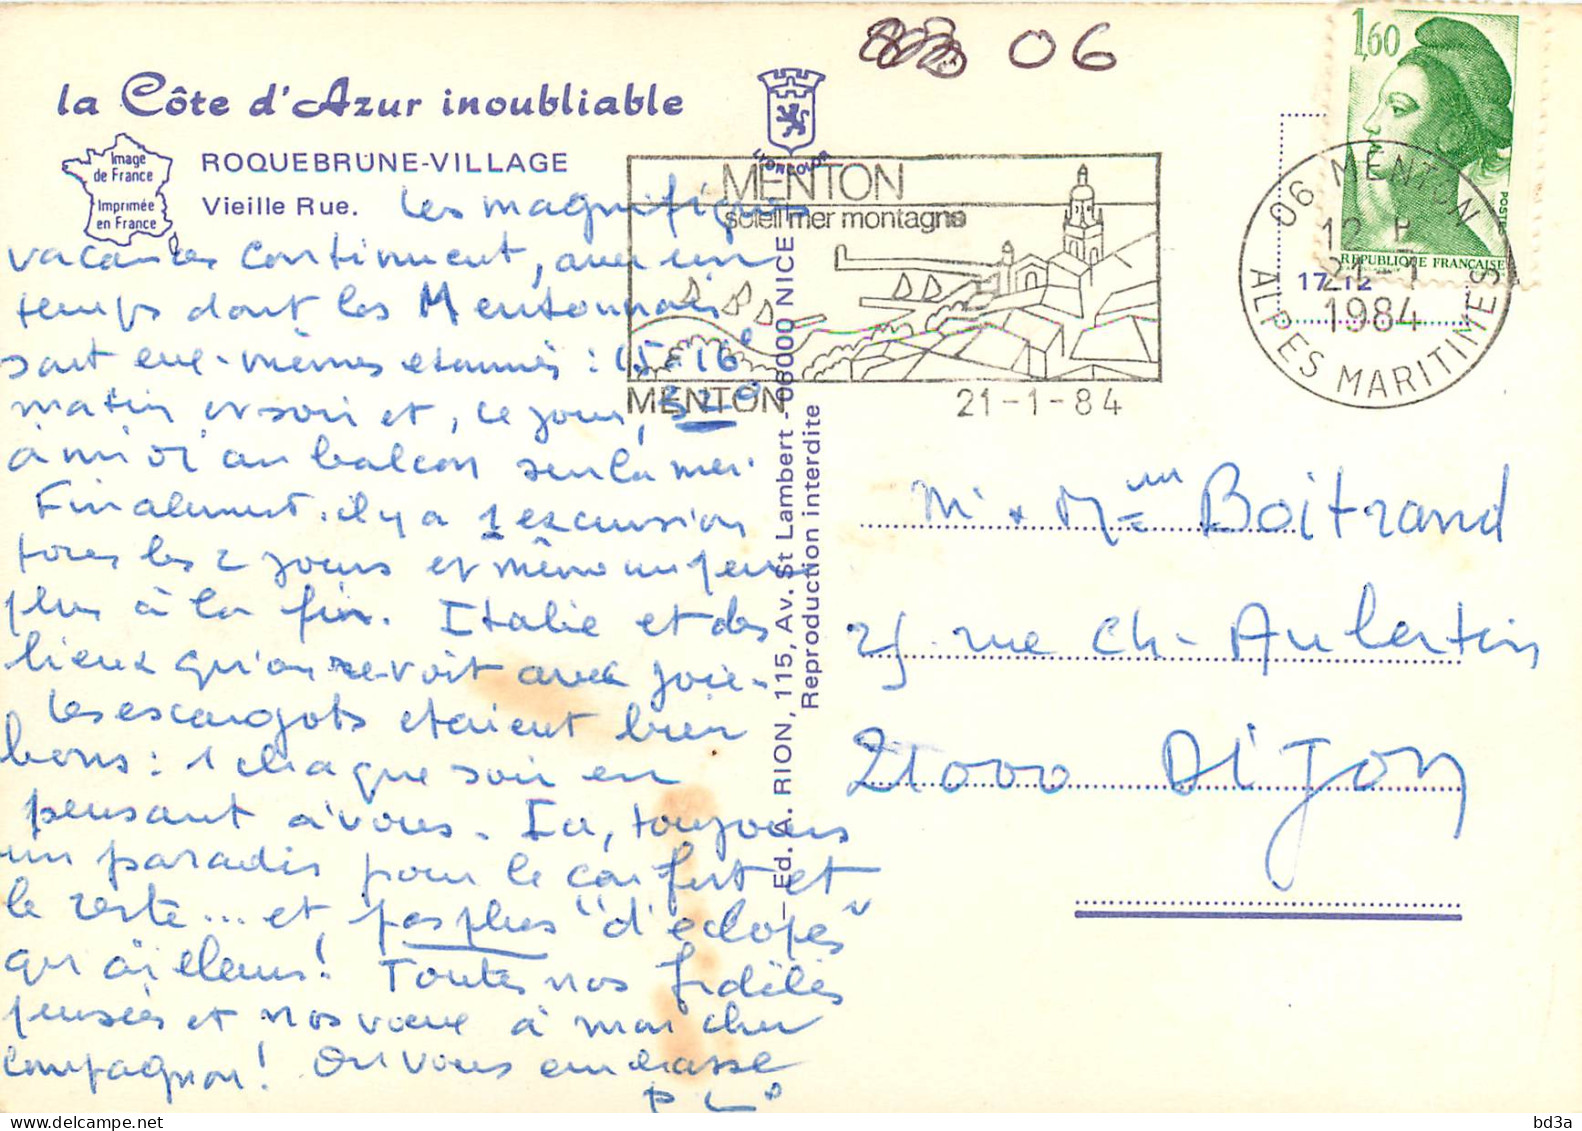 06
1,60
la Côte d'Azur inoubliable
Image
de France
Imprimée
en France
ROQUEBRUNE-VILLAGE
Vieille Rue.
LYONCOLOR
MENTON
soleil mer montagne
MENTON
21-1-84
06 MENTON
12 H
21-1
1984
ALPES MARITIMES
REPUBLIQUE FRANÇAISE
POSTES
17.212
Les magnifiques
vacances continuent, avec un
temps dont les Mentonnais
sont eux-mêmes étonnés : 15-16°
matin et soir et, ce jour, 32°
à midi au balcon sur la mer.
Finalement il y a 1 excursion
tous les 2 jours et même un peu
plus à la fin. Italie et des
lieux qu'on revoit avec joie.
Les escargots étaient bien
bons : 1 chaque soir en
pensant à vous. Ici, toujours
un paradis pour le confort et
le reste... et, pas plus "d'éclopés"
qu'ailleurs! Toutes nos fidèles
pensées et nos vœux à mon cher
compagnon! On vous embrasse
P L
Ed. A. RION, 115, Av. St Lambert - 06000 NICE
Reproduction interdite
Mr & Mme Boitrand
25 rue Ch-Aubertin
21000 Dijon
bd3a